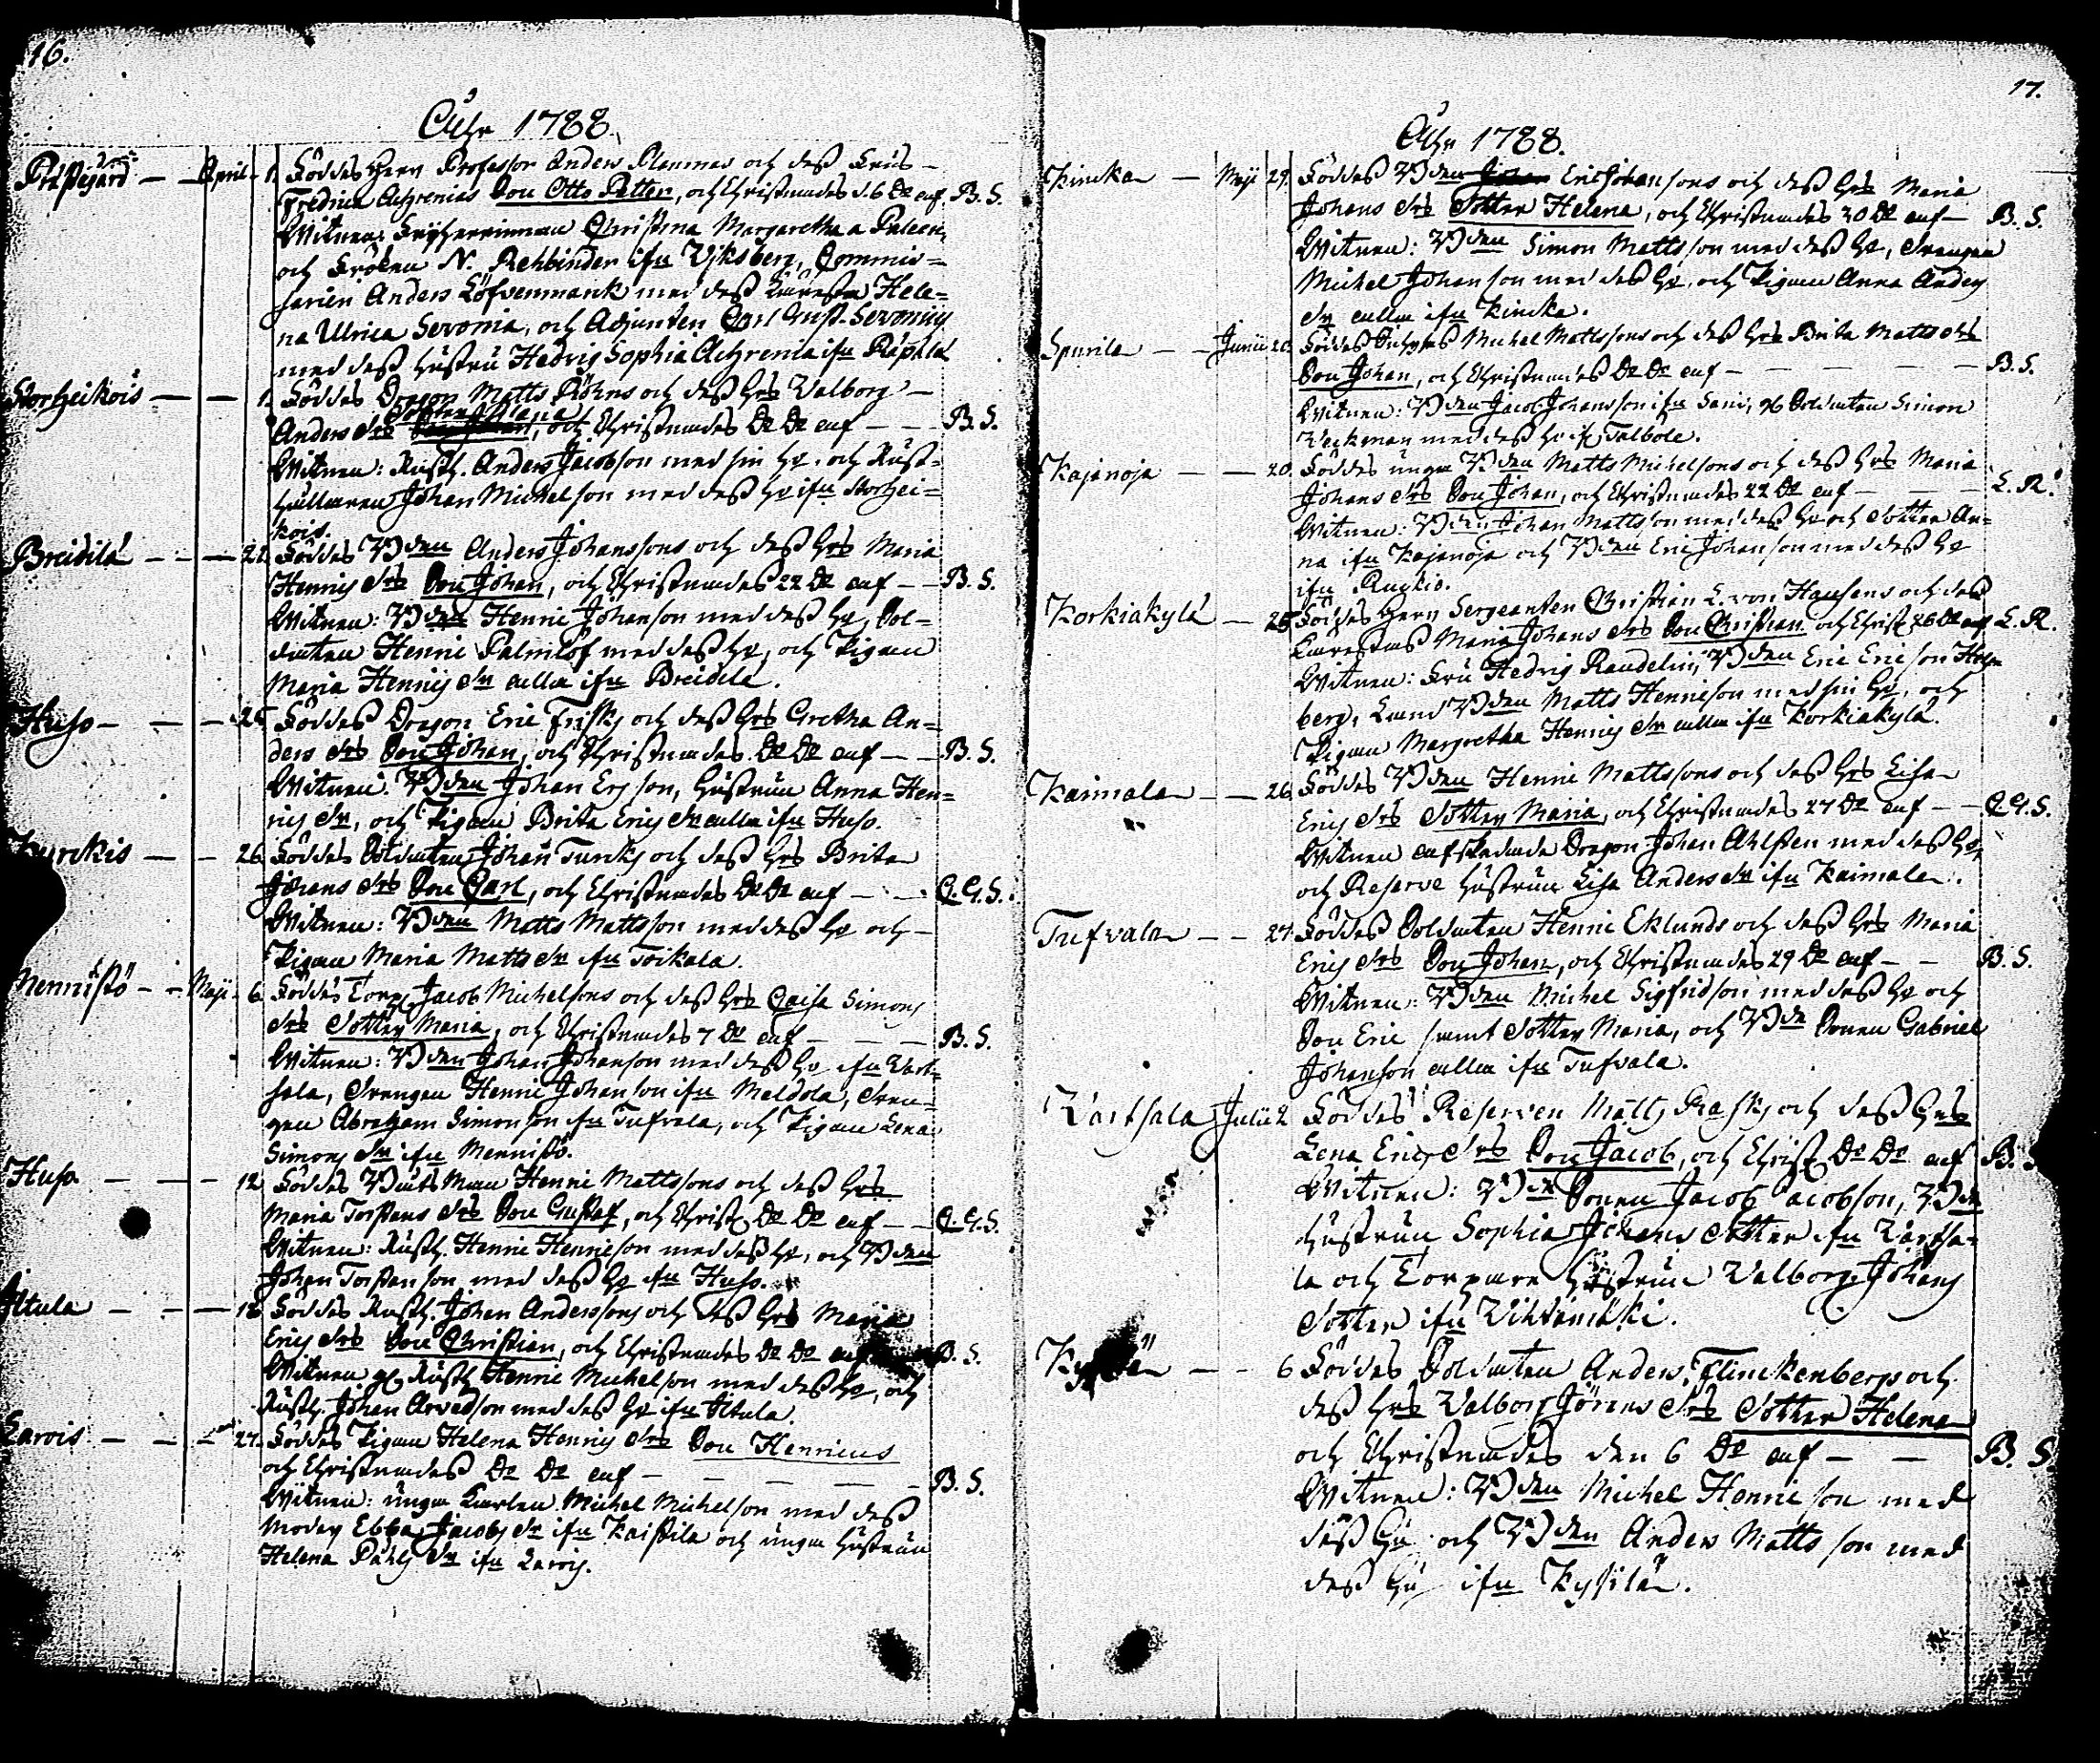 16.
Åhr 1788.
Prästegård — April 1. Föddes Herr Professor Anders Planmas och dess Frus
Fredrica Achrenias Son Otto Petter, och Christnades d. 6 Do auf B. S.
Witnen: Fryherrinnan Christina Margaretha a Paleen,
och Fröken N. Rehbinder ifrn Vjksberg, Commis=
sarien Anders Löfvenmark med dess Käresta Hele=
na Ulrica Seronia, och Adjuncten Carl Gust. Seronius
med dess Hustru Hedvig Sophia Achrenia ifrn
Storheikois — — 1. Föddes Dragon Matts Röhns och dess Hrs Valborg
Anders Drs Dotter Maria, och Christnades Do Do auf — — B. S.
Witnen: Rusth. Anders Jacobson med sin Hu. och Rust=
hållaren Johan Michelson med dess Hu ifrn Storhei=
kois.
Breidilä — — 22. Föddes Bden Anders Johanssons och dess Hrs Maria
Henrics Drs Son Johan, och Christnades 22 Do auf — — B. S.
Witnen: Bden Henric Johanson med dess Hu, Sol=
daten Henric Palmlöf med dess Hu, och Pigan
Maria Henrics Dr alla ifrn Breidila.
Huso — — 25. Föddes Dragon Eric Frisks och dess Hrs Gretha An=
ders Drs Son Johan, och Christnades Do Do auf — — B. S.
Witnen: Bden Johan Ersson, Hustrun Anna Hen=
rics Dr, och Pigan Brita Erics Dr alla ifrn Huso.
— — 26. Föddes Soldaten Johan Turcks och dess Hrs Brita
Jörans Drs Son Carl, och Christnades Do Do auf — — C. G. S.
Witnen: Bden Matts Mattsson med dess Hu och
Pigan Maria Matts Dr ifrn Toikala.
Mennistö — — Maji 6. Föddes Torp. Jacob Michelsons och dess Hrs Caisa Simons
Drs Dotter Maria, och Christnades 7 Do auf — — — B. S.
Witnen: Bden Johan Johanson med dess Hu ifrn Vart=
sala, Drengen Henric Johanson ifrn Meldola, Dren=
gen Abraham Simonson ifrn Tufvala, och Pigan Lena
Simons Dr ifrn Mennistö.
Huso — — 12. Föddes Båtsman Henric Mattssons och dess Hrs
Maria Torstens Drs Son Gustaf, och Christ. Do Do auf — — C. G. S.
Witnen: Rusth. Henric Henricson med dess Hu, och Bden
Johan Torstenson med dess Hu ifrn Huso.
Iltula — — Föddes Rusth. Johan Anderssons och dess Hrs Maria
Erics Drs Son Christian, och Christnades Do Do auf B. S.
Witnen Rusth. Henric Michelson med dess Hu, och
Rusth. Johan Arvedson med dess Hu ifrn Iltula.
Larois — — — 27. Föddes Pigan Helena Henrics Drs Son Henricus
och Christnades Do Do auf — — — — B. S.
Witnen: unga Karlen Michel Michelson med dess
Moder Ebba Jacobs Dr ifrn Kaistila och unga Hustrun
Helena Påhls Dr ifrn Larois.
17.
Åhr 1788.
Kincka — Maji 29. Föddes Bden Eric Johansons och dess Hrs Maria
Johans Drs Dotter Helena, och Christnades 30 Do auf — B. S.
Witnen: Bden Simon Mattsson med dess Hu, Drengen
Michel Johanson med dess Hu, och Pigan Anna Anders
Dr alla ifrn Kincka.
Spurila — — Junii 20. Föddes Michel Mattssons och dess Hrs Brita Matts Drs
Son Johan, och Christnades Do Do auf — — — — — B. S.
Witnen: Bden Jacob Johansson ifrn Sani, Soldaten Simon
Veckman med dess Hu Talbole.
Kajanoja — — 20. Föddes unga Bden Matts Michelsons och dess Hrs Maria
Johans Drs Son Johan, och Christnades 22 Do auf — — — L. R.
Witnen: Bden Johan Mattsson med dess Hu och Dotter An=
na ifrn Kajanoja och Bden Eric Johanson med dess Hu
ifrn Rungkio.
Korkiakylä — 25. Föddes Herr Sergeanten Christian L. von Hausens och dess
Kärestas Maria Johans Drs Son Christian och Christ. 26 Do auf L. R.
Witnen: Fru Hedvig Randelin, Bden Eric Ericson Holm
berg, Bden Matts Henricson med sin Hu. och
Pigan Margretha Henrics Dr alla ifrn Korkiakylä.
Kaimala — — 26. Föddes Bden Henric Mattssons och dess Hrs Lisa
Erics Drs Dotter Maria, och Christnades 27 Do auf — — C. G. S.
Witnen Dragon Johan Ahlsten med dess Hu,
och Reserve Hustrun Lisa Anders Dr ifrn Kaimala.
Tufvala — — 27. Föddes Soldaten Henric Eklunds och dess Hrs Maria
Erics Drs Son Johan, och Christnades 29 Do auf — — B. S.
Witnen: Bden Michel Sigfridson med dess Hu och
Son Eric samt Dotter Maria, och Bde Sonen Gabriel
Johanson alla ifrn Tufvala.
Vartsala Julii 2. Föddes Reserven Matts Rasks och dess Hrs
Lena Erics Drs Son Jacob, och Christ. Do Do auf B.
Witnen: Bde Sonen Jacob Jacobson, Bde
Hustrun Sophia Johans Dotter ifrn Vartsa=
la och Torpare Hustrun Valborg Johans
Dotter ifrn Vihtämäki.
— — 6 Föddes Soldaten Anders Flinckenbergs och
dess Hrs Valborg Jörans Drs Dotter Helena
och Christnades den 6 Do auf — — B. S.
Witnen: Bden Michel Henricson med
dess Hu och Bden Anders Mattsson med
dess Hu ifrn Kyssilä.